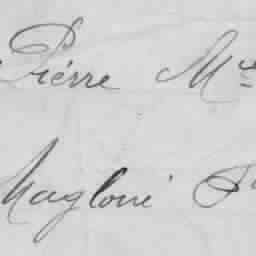 Piérre M
Magloire